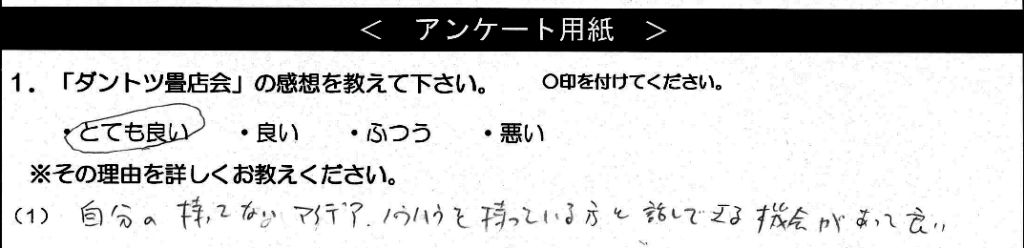 ＜ アンケート用紙 ＞
1. 「ダントツ畳店会」の感想を教えて下さい。 〇印を付けてください。
・とても良い ・良い ・ふつう ・悪い
※その理由を詳しくお教えください。
(1) 自分の持ってないアイデア、ノウハウを持っている方と話しできる機会があって良い